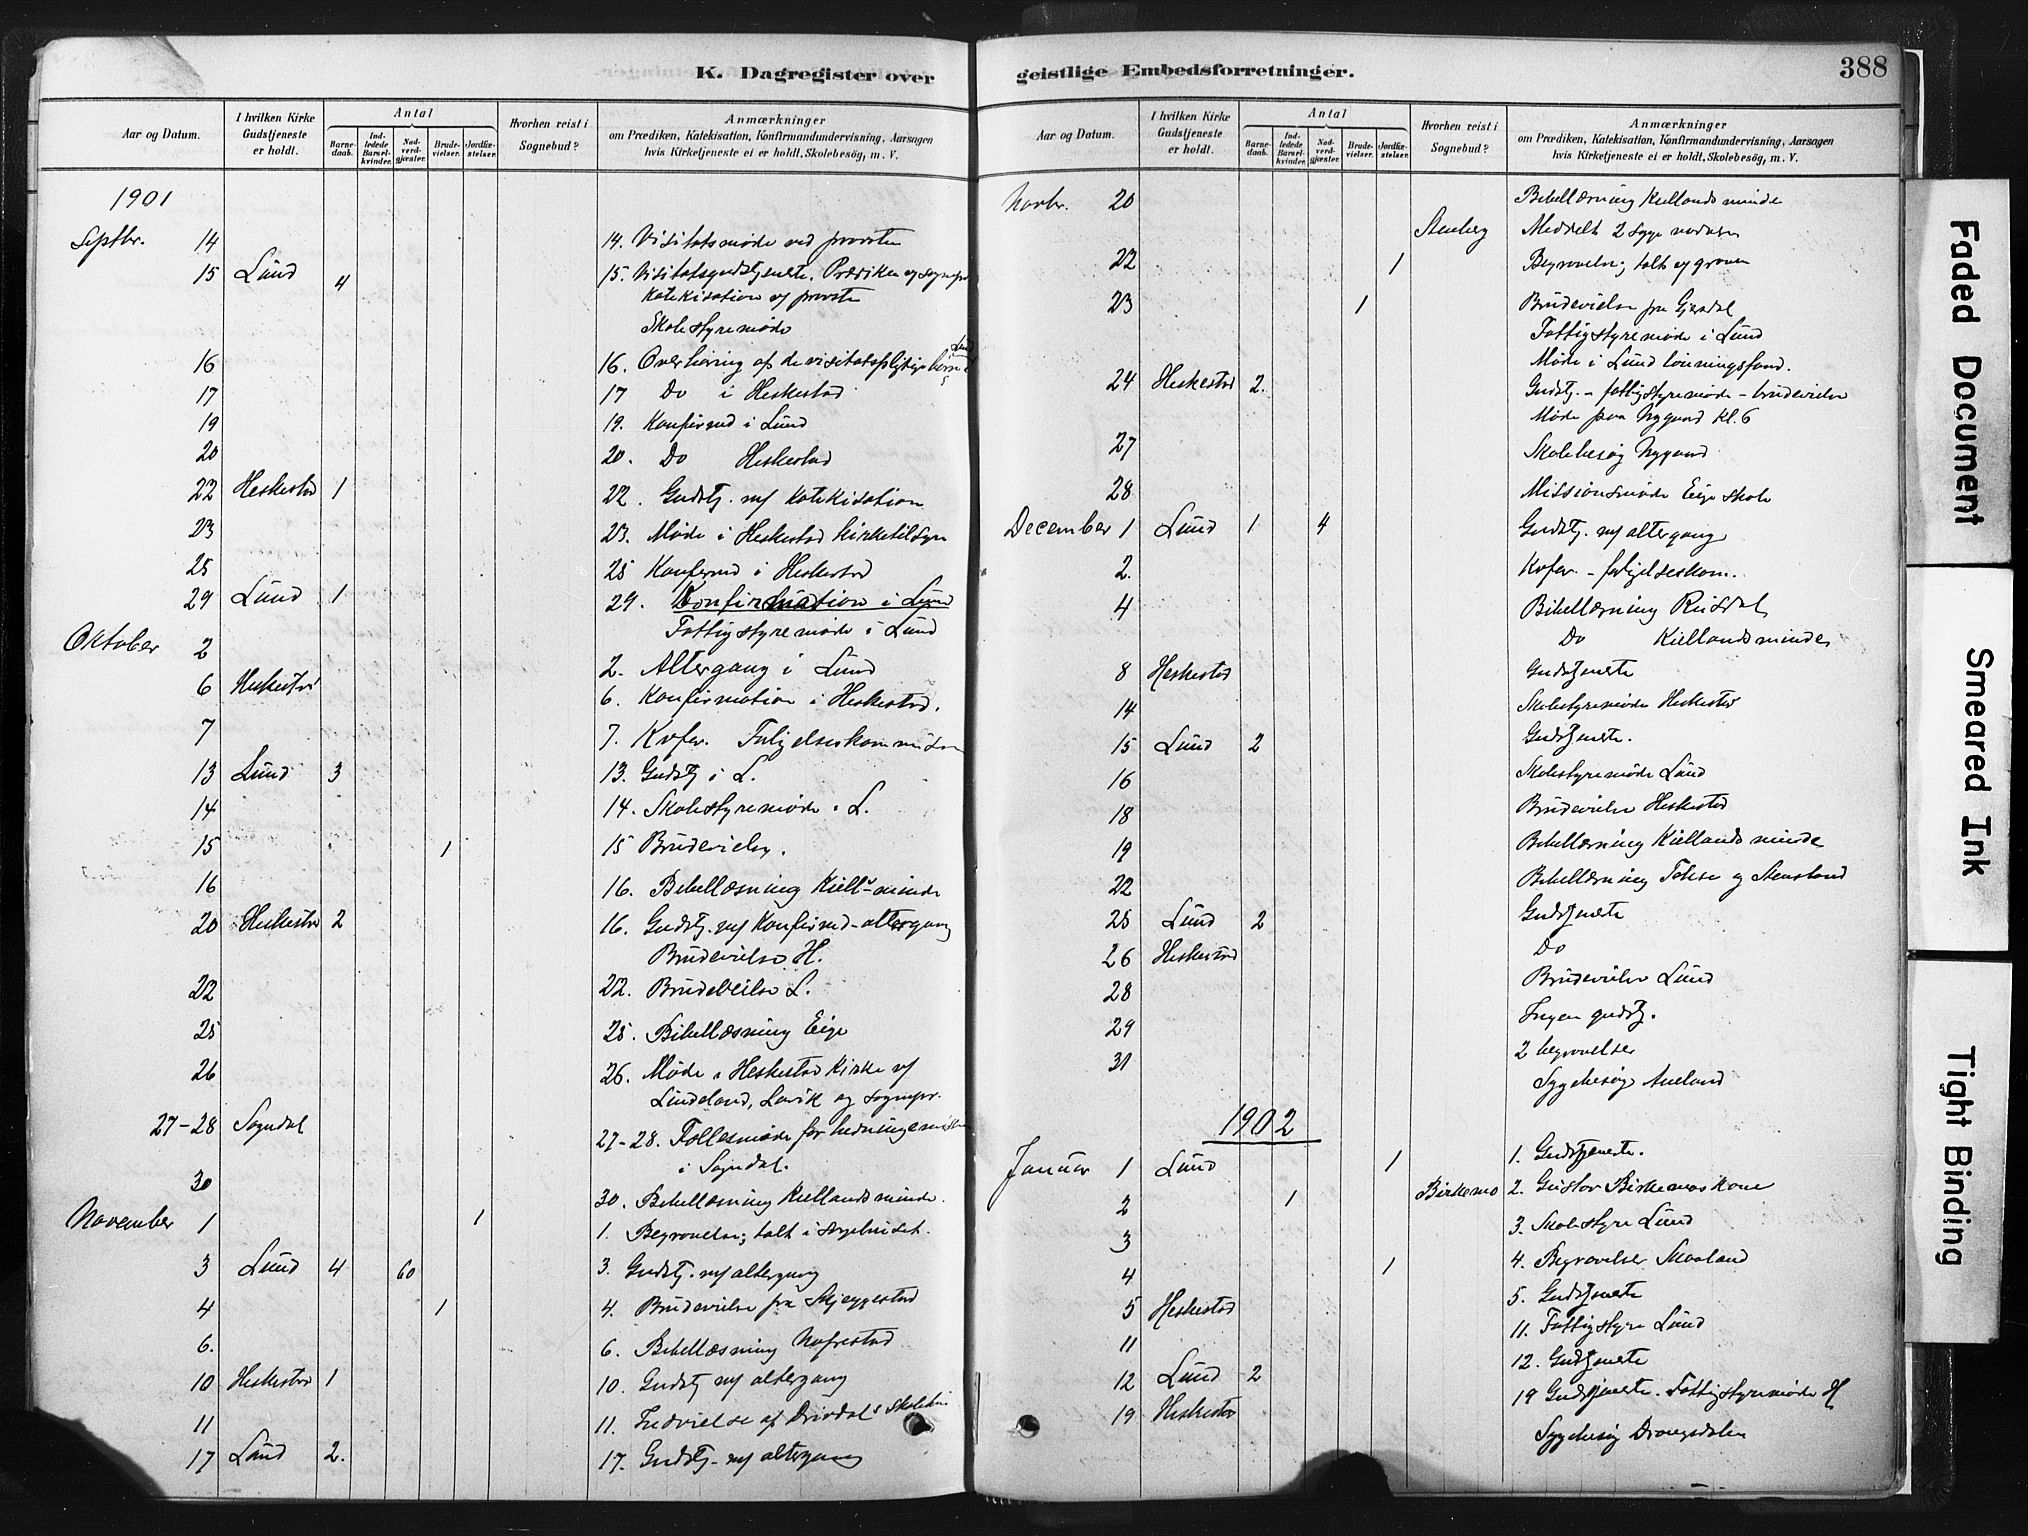 K. Dagregister over
Aar og Datum. I hvilken Kirke Gudstjeneste er holdt. Antal Barnedaab. Indledede Barselkvinder. Nadverdgjæster. Brudevielser. Jordfæstelser. Hvorhen reist i Sognebud? Anmærkninger om Prædiken, Katekisation, Konfirmandundervisning, Aarsagen hvis Kirketjeneste ei er holdt, Skolebesøg, m. V.
1901
Septbr. 14 14. Visitatsmøde ved provsten
15 Lund 4 15. Visitatsgudstjeneste. Prædiken af sognepr
Katekisation v/ provsten
Skolestyremøde
16 16. Overhøring af de visitatspligtige børn i Lund
17 17 Do i Heskestad
19 19. Konfirmd i Lund
20 20. Do Heskestad
22 Heskestad 1 22. Gudstj. m/ Katekisation
23 23. Møde i Heskestad kirketilsyn
25 25 Konfirmd i Heskestad
29 Lund 1 29. Konfirmation i Lund
Fattigstyremøde i Lund
Oktober 2 2. Altergang i Lund
6 Heskestad 6. Konfirmation i Heskestad.
7 7. Kvfør. Forligelseskommission
13 Lund 3 13. Gudstj i L.
14 14. Skolestyremøde i L.
15 1 15 Brudevielse.
16 16. Bibellæsning Kiells minde
20 Heskestad 2 16. Gudstj. m/ Konfirmd - altergang
Brudevielse H.
22 22. Brudevielse L.
25 25. Bibellæsning Eige
26 26. Møde i Heskestad Kirke m/
Lindeland, Lavik og sognepr.
27-28 Sogndal 27-28. Fællesmøde for hedningemission
i Sogndal.
30 30. Bibellæsning Kiellandsminde.
November 1 1 1. Begravelse; talt i sørgehuset.
3 Lund 4 60 3. Gudstj. m/ altergang
4 1 4. Brudevielse fra Skjeggestad
6. 6. Bibellæsning Hafrestad
10 Heskestad 1 10. Gudstj m/ altergang
11 11. Indvielse af Drivdals Skolehus
17 Lund 2. 17. Gudstj. m/ altergang
geistlige Embedsforretninger. 388
Aar og Datum. I hvilken Kirke Gudstjeneste er holdt. Antal Barnedaab. Indledede Barselkvinder. Nadverdgjæster. Brudevielser. Jordfæstelser. Hvorhen reist i Sognebud? Anmærkninger om Prædiken, Katekisation, Konfirmandundervisning, Aarsagen hvis Kirketjeneste ei er holdt, Skolebesøg, m. V.
Novbr. 20 Bibellæsning Kiellandsminde
Stenberg Meddelt 2 syge nadveren
22 1 Begravelse; talt v/ graven
23 1 Brudevielse fra Gjersdal
Fattigstyremøde i Lund
Møde i Lund lønningsfond.
24 Heskestad 2. Gudstj. - fattigstyremøde - brudevielse
Møde paa Nygaard Kl. 6
27 Skolebesøg Nygaard
28 Missionsmøde Eige skole
December 1 Lund 1 4 Gudstj. m/ altergang
2. Kvfør. - forligelseskom.
4 Bibellæsning Rusdal
Do Kiellandsminde
8 Heskestad Gudstjeneste
14 Skolestyremøde Heskestad
15 Lund 2 Gudstjeneste.
16 Skolestyremøde Lund
18 Brudevielse Heskestad
19 Bibellæsning Kiellandsminde
22 Bibellæsning Tekse og Stensland
25 Lund 2 Gudstjeneste
26 Heskestad Do
28 Brudevielse Lund
29 Ingen gudstj.
31 2 begravelser
Sygebesøg Aueland
1902
Januar 1 Lund 1 1. Gudstjeneste.
2 1 Birkemo 2. Gustav Birkemos kone
3 3. Skolestyre Lund
4 1 4. Begravelse Skaaland
5 Heskestad 5. Gudstjeneste
11 11. Fattigstyre Lund
12 Lund 2 12. Gudstjeneste
19 Heskestad 19 Gudstjeneste. Fattigstyremøde H
Sygebesøg Drangsdalen
Faded Document
Smeared Ink
Tight Binding